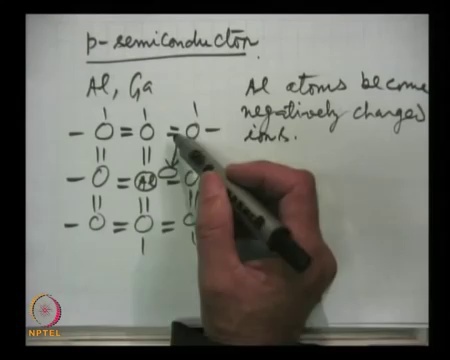 p-semiconductor.
Al, Ga
Al atoms become
negatively charged
ions.
Al
NPTEL